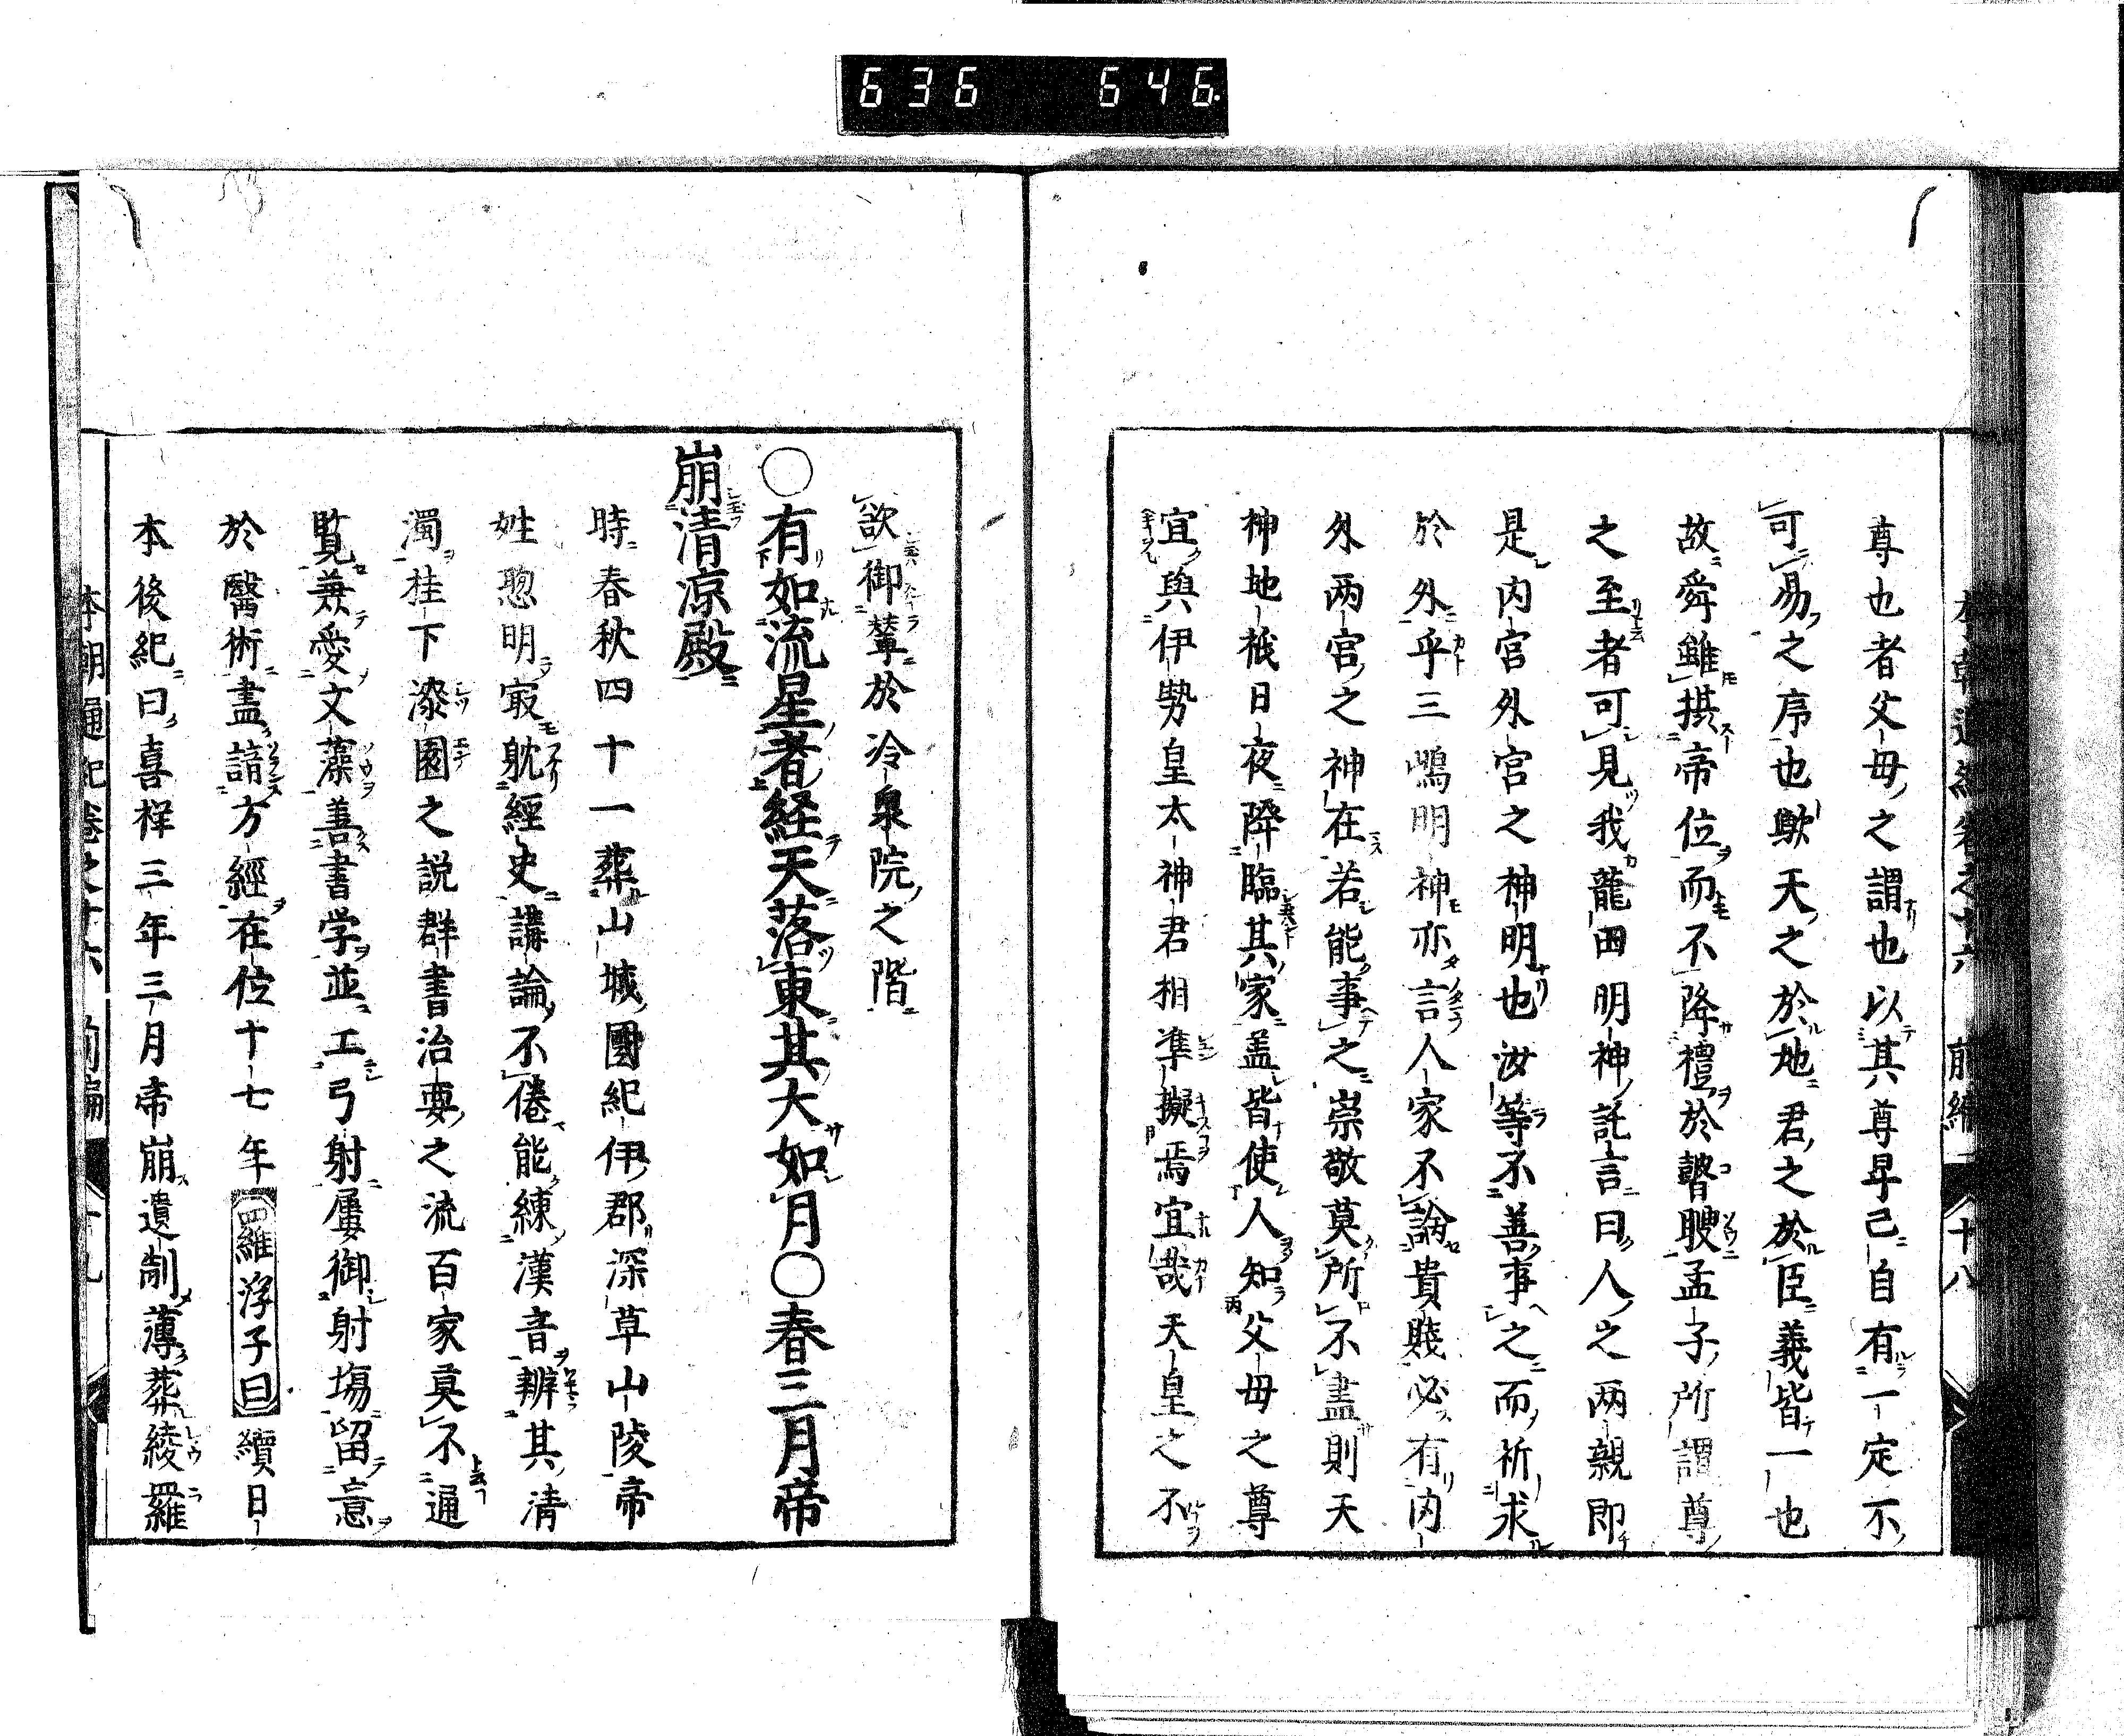 636 646
本朝通紀卷之十六 前編 十八
尊也者父母之謂也以其尊卑己自有一定不
可易之序也歟天之於地君之於臣義皆一也
故舜雖拱帝位而不降禮於瞽瞍孟子所謂尊
之至者可見我龍田明神託言曰人之两親即
是内宮外宮之神明也汝等不善事之而祈求
於外乎三嶋明神亦言人家不論貴賤必有内
外两宮之神在若能事之崇敬莫所不盡則天
神地祇日夜降臨其家盖皆使人知父母之尊
宜與伊勢皇太神君相準擬焉宜哉天皇之不
欲御輦於冷泉院之階
〇有如流星者経天落東其大如月〇春三月帝
崩清凉殿
時春秋四十一葬山城國紀伊郡深草山陵帝
姓聰明㝡躭經史講論不倦能練漢音辨其清
濁桂下漆園之説群書治要之流百家莫不通
覧兼愛文藻善書学並工弓射屢御射塲留意
於醫術盡諳方經在位十七年羅浮子曰續日
本後紀曰喜祥三年三月帝崩遺制薄葬綾羅
本朝通紀卷之十六 前編 十九